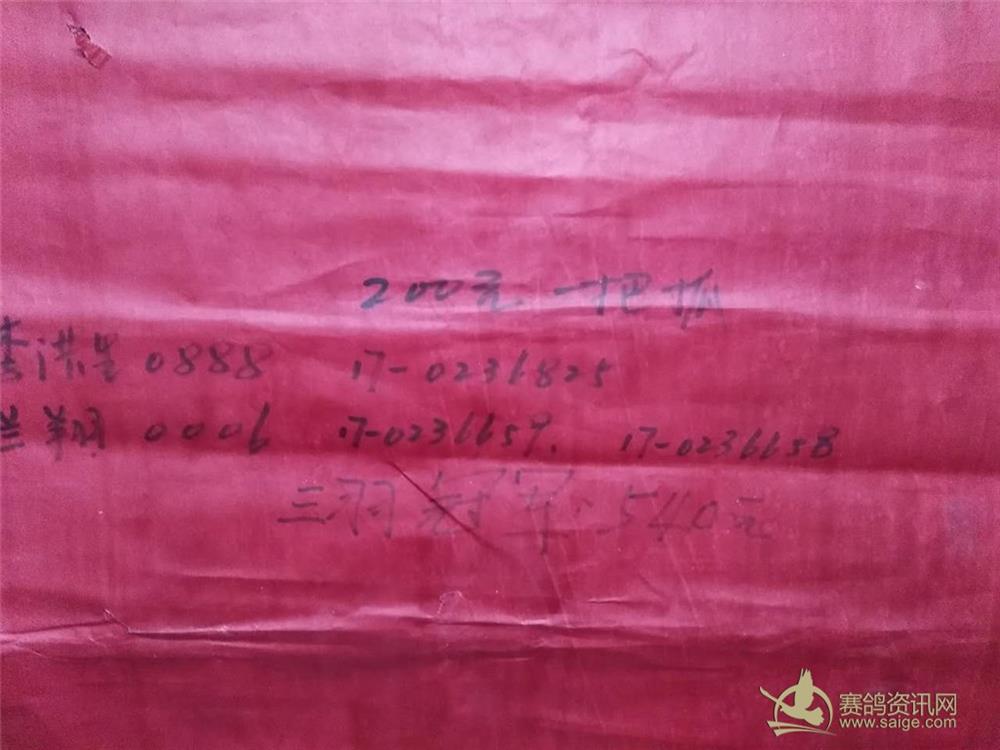 200元 一把抓
李洪星 0888 17-0236825
兰翔 0006 17-0236659. 17-0236658
三羽冠军. 540元
赛鸽资讯网
www.saige.com